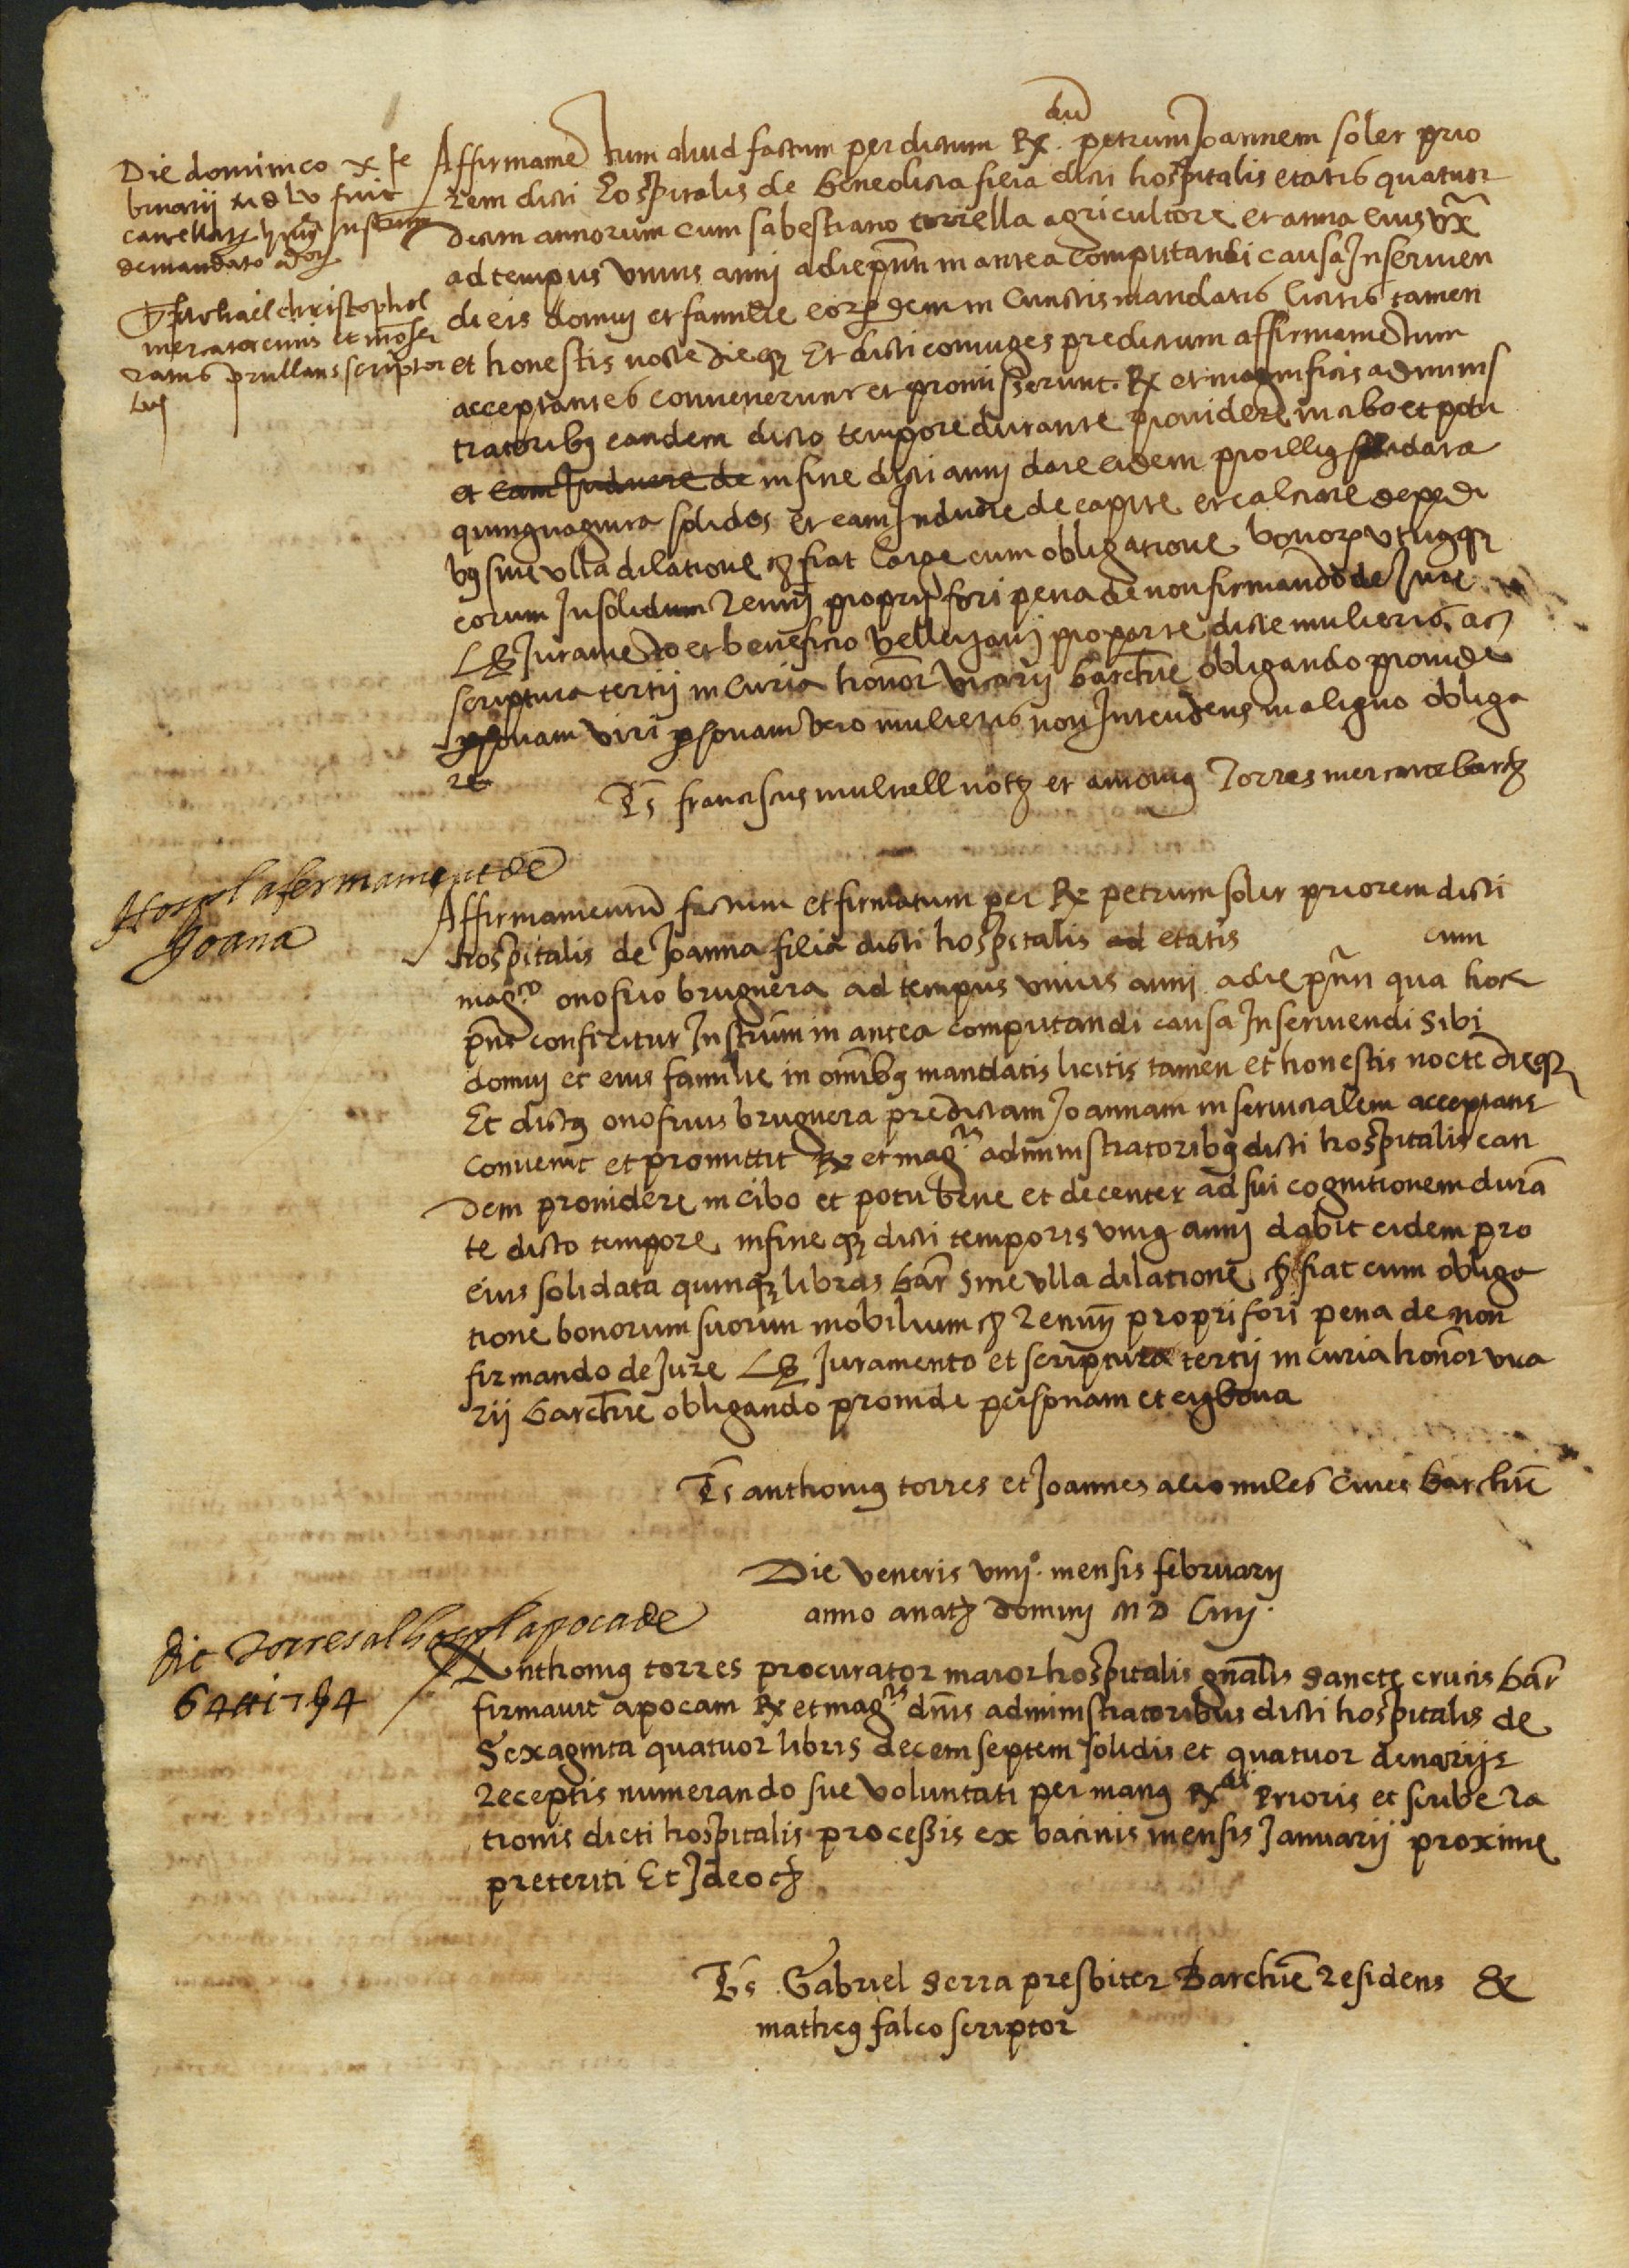 Die dominico x fe
bruarii MDLV fuit
cancellatum Instrum
de mandato
Michael christophol
mercator civis et
scriptor
Affirmamentum aliud factum per dictum Rx. dum petrum Joannem soler prio
rem dicti hospitalis de benedicta filia dicti hospitalis etatis quatuor
decim annorum cum sabestiano torrella agricultore et anna eius ux
ad tempus unius anni a die pnti in antea computandi causa Inservien
di eis domui et familie eorumdem in cunctis mandatis licitis tamen
et honestis nocte dieq Et dicti coniuges predictum affirmamentum
acceptantes convenerunt et promisserunt Rx et magnificis adminis
tratoribus eandem dicto tempore durante providere in cibo et potu
et eam Induere de in fine dicti anni dare eidem pro illius solidata
quinquaginta solidos et eam Induere de capite et calciare de pedi
bus sine ulla dilatione etc fiat large cum obligatione bonorum utriusq
eorum Insolidum renun proprii fori pena de non firmando de Jure
Juramento et beneficio velleyani pro parte dicte mulieris ac
scriptura tertii in curia honor vicarii barchne obligando proinde
personam viri personam vero mulieris non Intendens in aliquo obliga
re
Ts franciscus mulnell not et antonius Torres mercator barch
Hospl afermament de
Joana
Affirmamentum factum et firmatum per Rx petrum soler priorem dicti
hospitalis de Joanna filia dicti hospitalis ad etatis cum
magco onofrio brugnera ad tempus unius anni a die pnti qua hoc
pnt conficitur Instrum in antea computandi causa Inserviendi sibi
domui et eius familie in omibus mandatis licitis tamen et honestis nocte dieq
Et dictus onofrius brugnera predictam Joannam in servicialem acceptans
convenit et promittit Rx et magcis administratoribus dicti hospitalis ean
dem providere in cibo et potu bene et decenter ad sui cognitionem duran
te dicto tempore in fine q dicti temporis unius anni dabit eidem pro
eius solidata quinq libras bar sine ulla dilatione etc fiat cum obliga
tione bonorum suorum mobilium etc renun proprii fori pena de non
firmando de Jure Juramento et scriptura tertii in curia honor vica
rii barchne obligando proinde personam et eius bona
Ts anthonius torres et Joannes miles cives barchne
Die veneris viiij mensis februarii
anno a nat domini MDLiiij
dit Torres al hospl apoca de
64 ll 17 s 4
Anthonius torres procurator maior hospitalis gnalis sancte crucis bar
firmavit apocam Rx et magcis dnis administratoribus dicti hospitalis de
Sexaginta quatuor libris decem septem solidis et quatuor denariis
receptis numerando sue voluntati per manus Rx di Prioris et scribe ra
tionis dicti hospitalis processis ex bacinis mensis Januarii proxime
preteriti Et Ideo etc
Ts Gabriel serra presbiter Barchne residens &
matheus falco scriptor